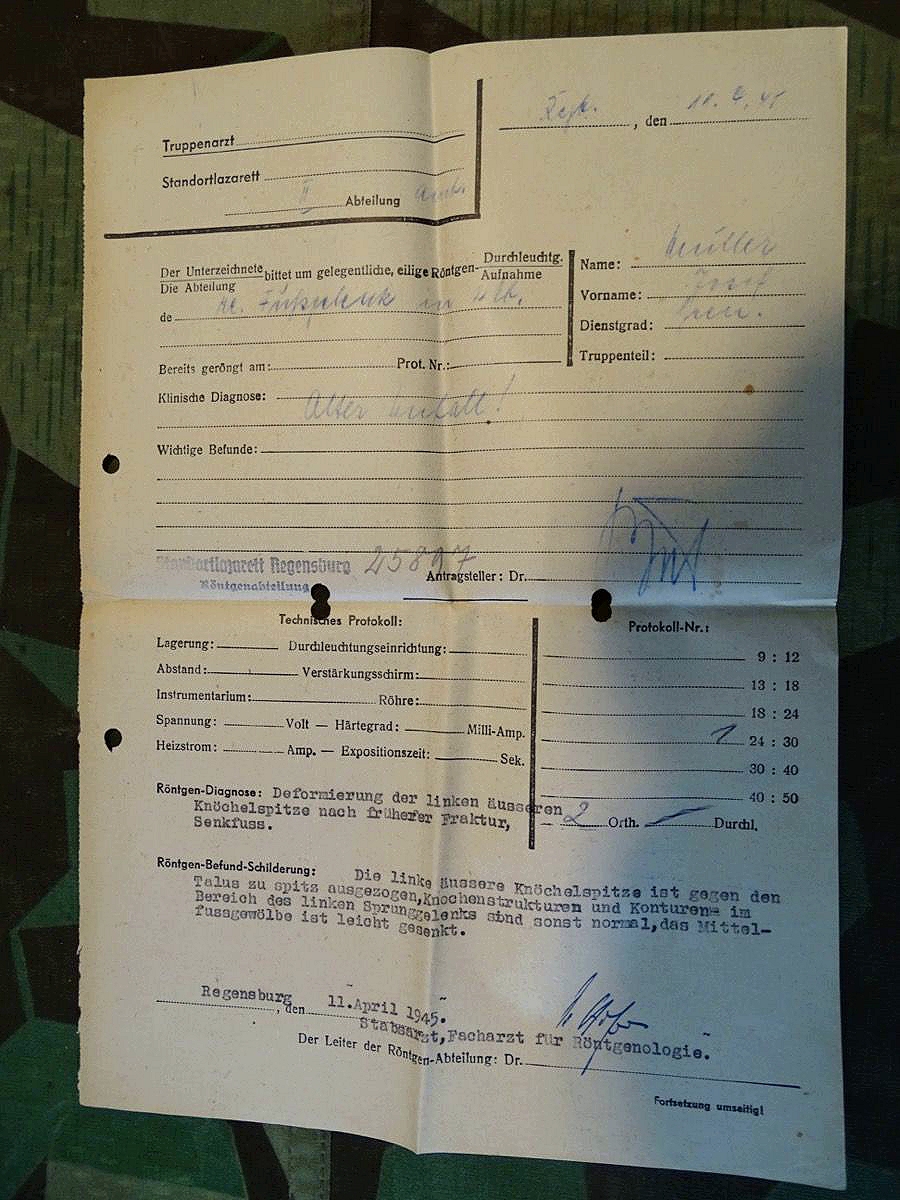 Truppenarzt
, den 10. 4. 45
Standortlazarett
II Abteilung
Der Unterzeichnete
Die Abteilung
bittet um gelegentliche, eilige Röntgen-
Durchleuchtg.
Aufnahme
Name: Müller
Vorname: Josef
Dienstgrad:
Truppenteil:
de in
Bereits geröngt am: Prot. Nr.:
Klinische Diagnose: Alter Unfall!
Wichtige Befunde:
Standortlazarett Regensburg
Röntgenabteilung
25897
Antragsteller: Dr.
Technisches Protokoll:
Lagerung: Durchleuchtungseinrichtung:
Abstand: Verstärkungsschirm:
Instrumentarium: Röhre:
Spannung: Volt — Härtegrad: Milli-Amp.
Heizstrom: Amp. — Expositionszeit: Sek.
Protokoll-Nr.:
9 : 12
13 : 18
18 : 24
1 24 : 30
30 : 40
40 : 50
2 Orth. Durchl.
Röntgen-Diagnose: Deformierung der linken äusseren
Knöchelspitze nach früherer Fraktur,
Senkfuss.
Röntgen-Befund-Schilderung: Die linke äussere Knöchelspitze ist gegen den
Talus zu spitz ausgezogen,Knochenstrukturen und Konturen im
Bereich des linken Sprunggelenks sind sonst normal,das Mittel-
fussgewölbe ist leicht gesenkt.
Regensburg, den 11.April 1945.
Stabsarzt,Facharzt für Röntgenologie.
Der Leiter der Röntgen-Abteilung: Dr.
Fortsetzung umseitig!